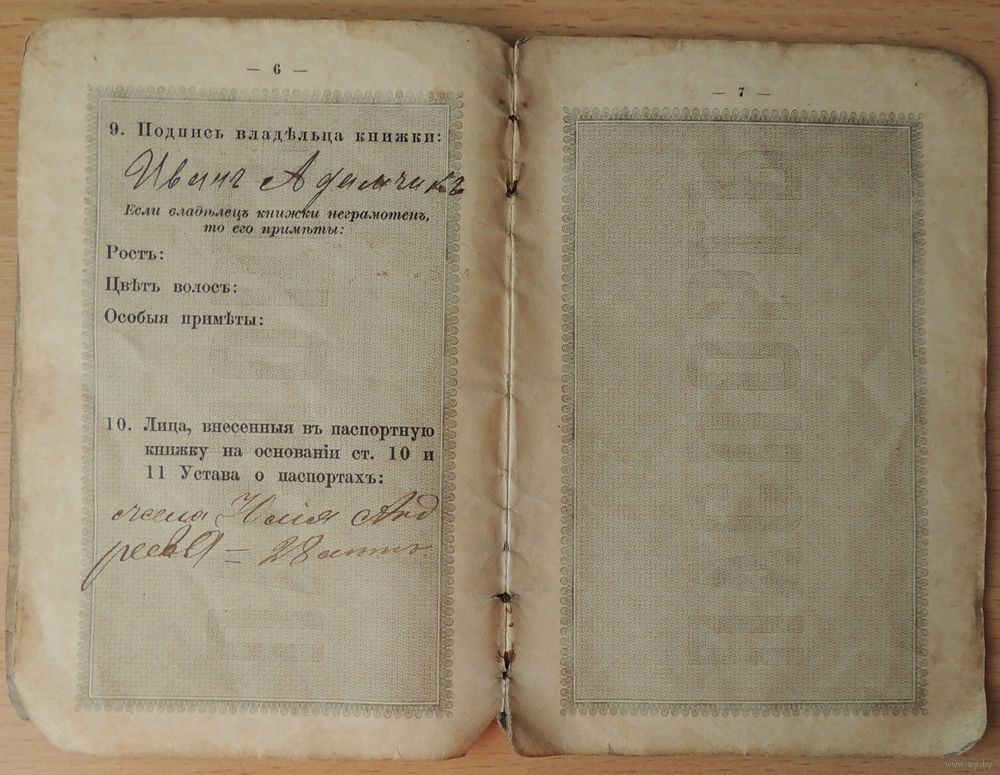 — 6 —
9. Подпись владѣльца книжки:
Иванъ Адамчикъ
Если владѣлецъ книжки неграмотенъ,
то его примѣты:
Ростъ:
Цвѣтъ волосъ:
Особыя примѣты:
10. Лица, внесенныя въ паспортную
книжку на основаніи ст. 10 и
11 Устава о паспортахъ:
жена Анд
реева — 28 лѣтъ
— 7 —
www.ay.by